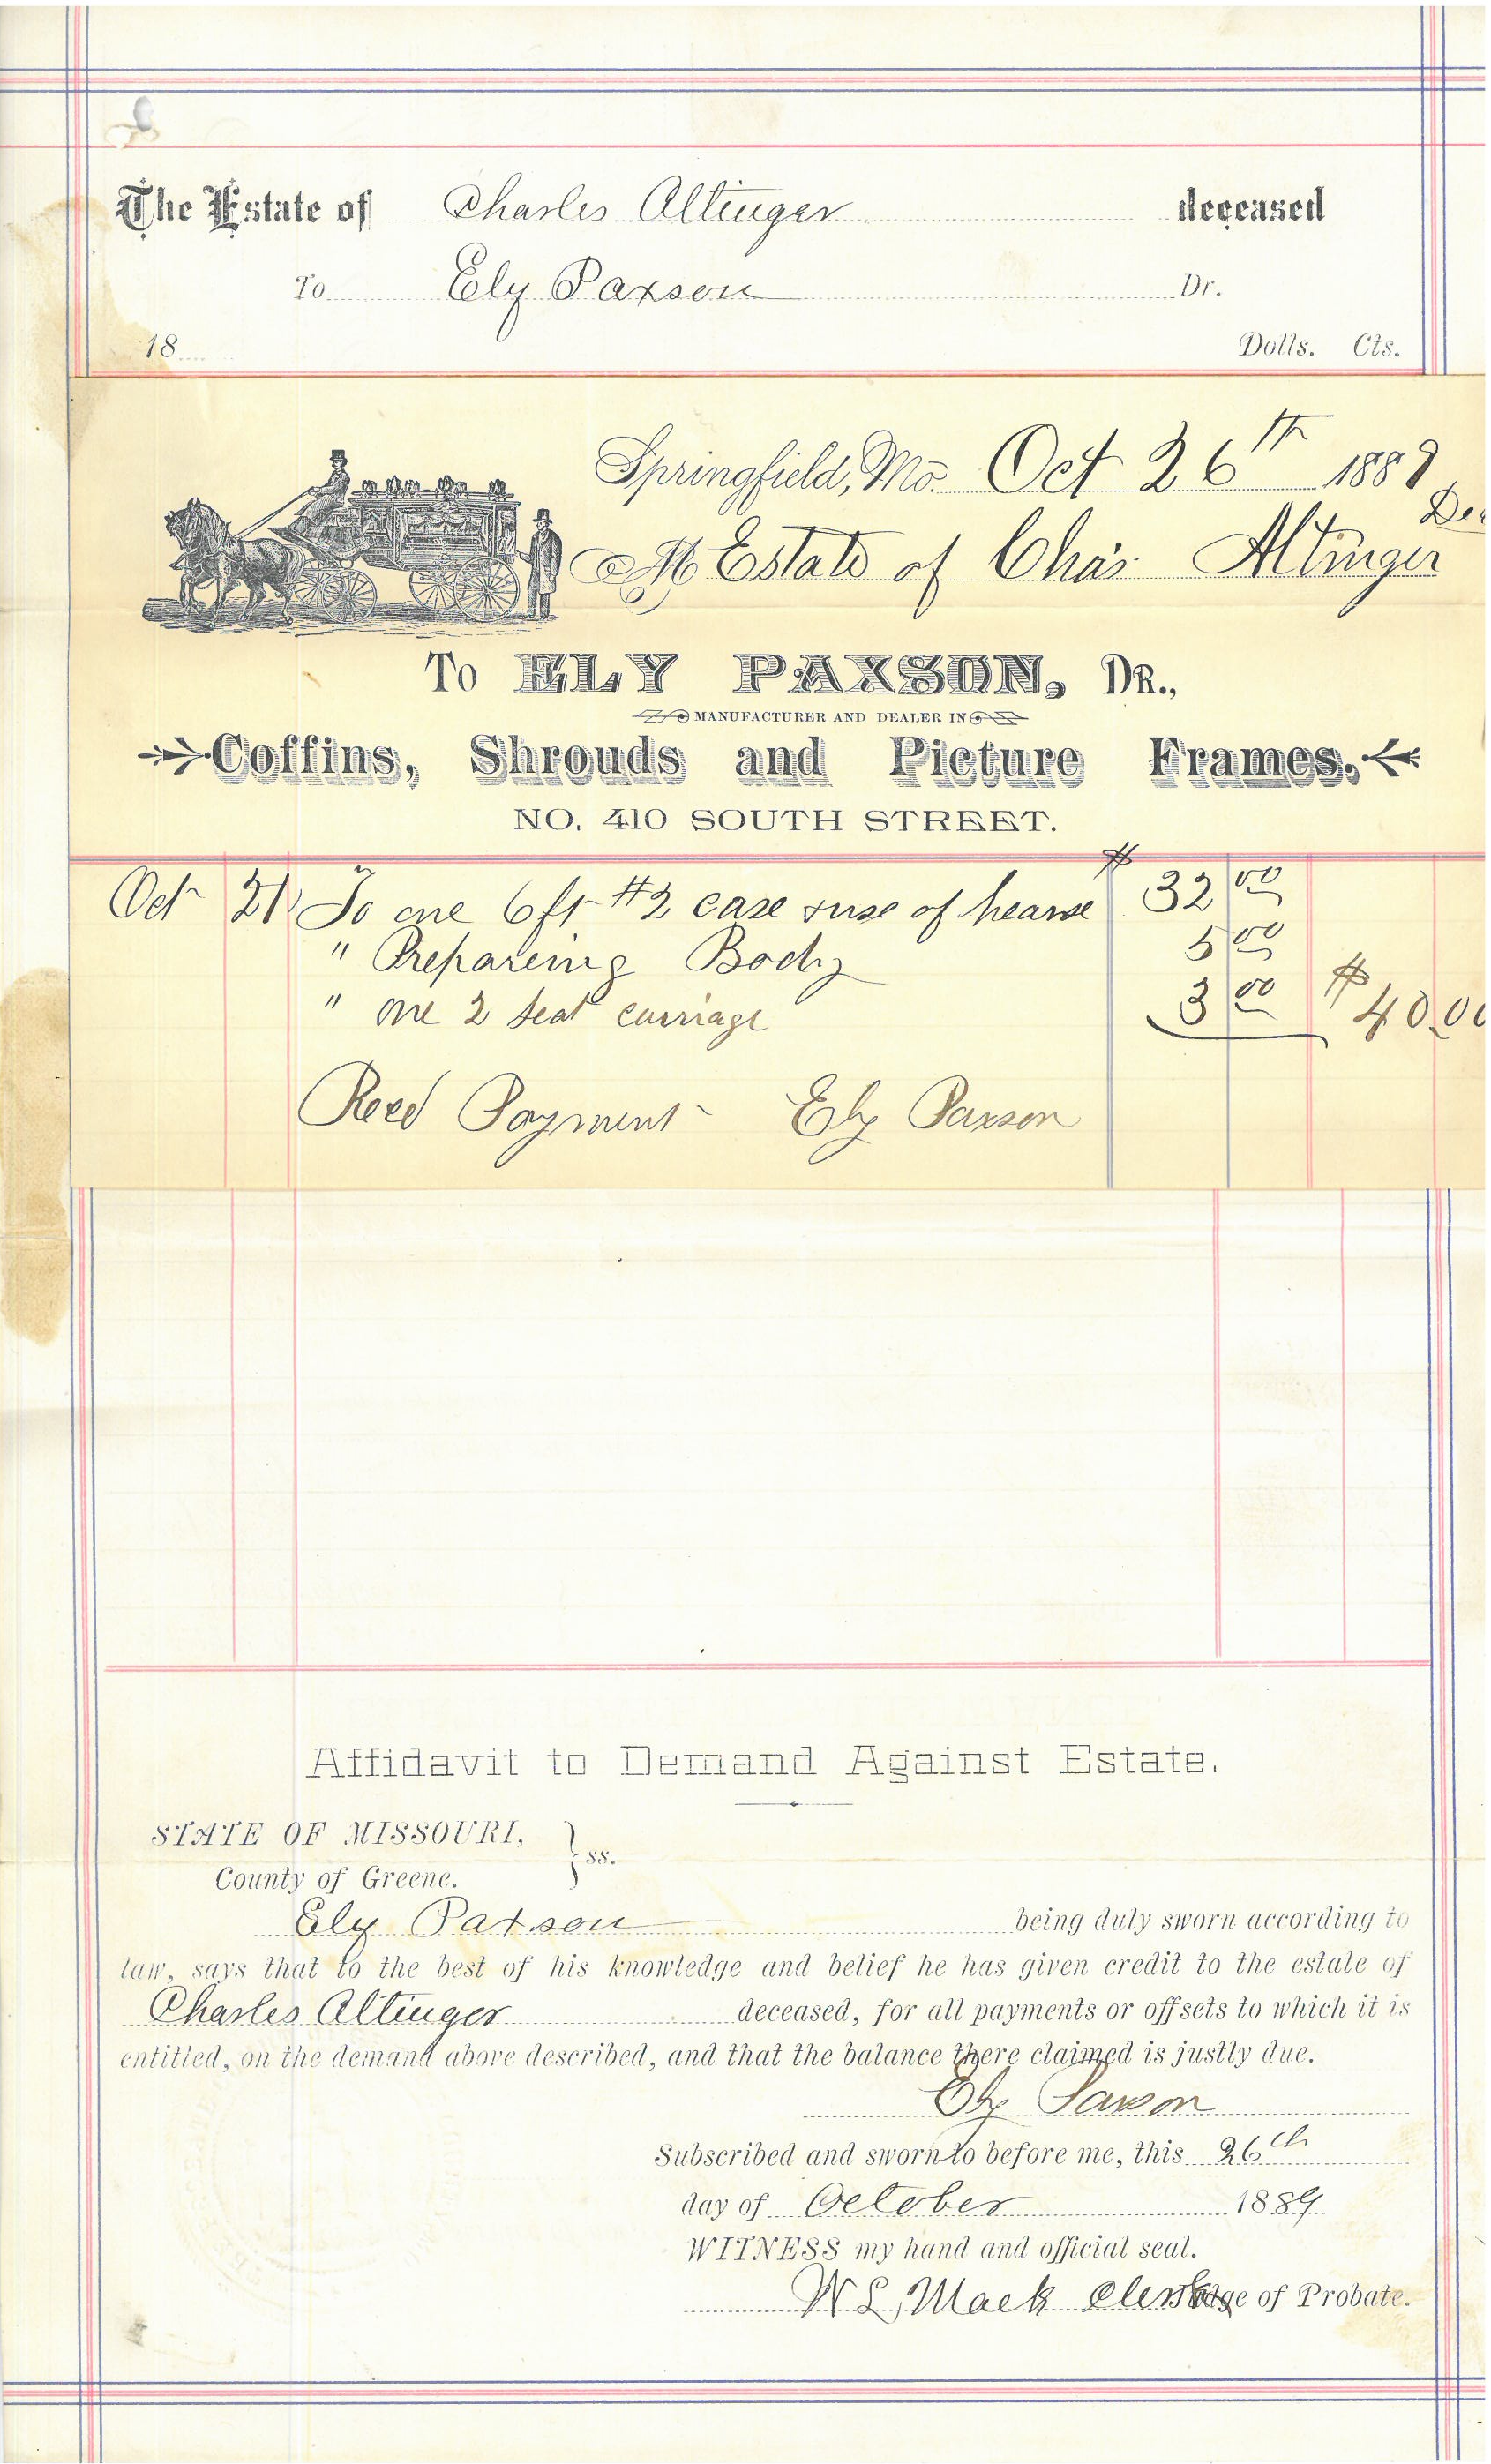 The Estate of Charles Altinger deceased
To Ely Paxson Dr.
18 Dolls. Cts.
Springfield, Mo. Oct 26th 1889
M Estate of Chas Altinger
To ELY PAXSON, DR.,
MANUFACTURER AND DEALER IN
Coffins, Shrouds and Picture Frames.
NO. 410 SOUTH STREET.
Oct 21 To one 6 ft #2 case & use of hearse $ 32 00
" Prepareing Body 5 00
" one 2 seat carriage 3 00 $ 40.00
Recd Payment Ely Paxson
Affidavit to Demand Against Estate.
STATE OF MISSOURI, } ss.
County of Greene.
Ely Paxson being duly sworn according to
law, says that to the best of his knowledge and belief he has given credit to the estate of
Charles Altinger deceased, for all payments or offsets to which it is
entitled, on the demand above described, and that the balance there claimed is justly due.
Ely Paxson
Subscribed and sworn to before me, this 26th
day of October 1889
WITNESS my hand and official seal.
W. L. Mack Clerk Judge of Probate.